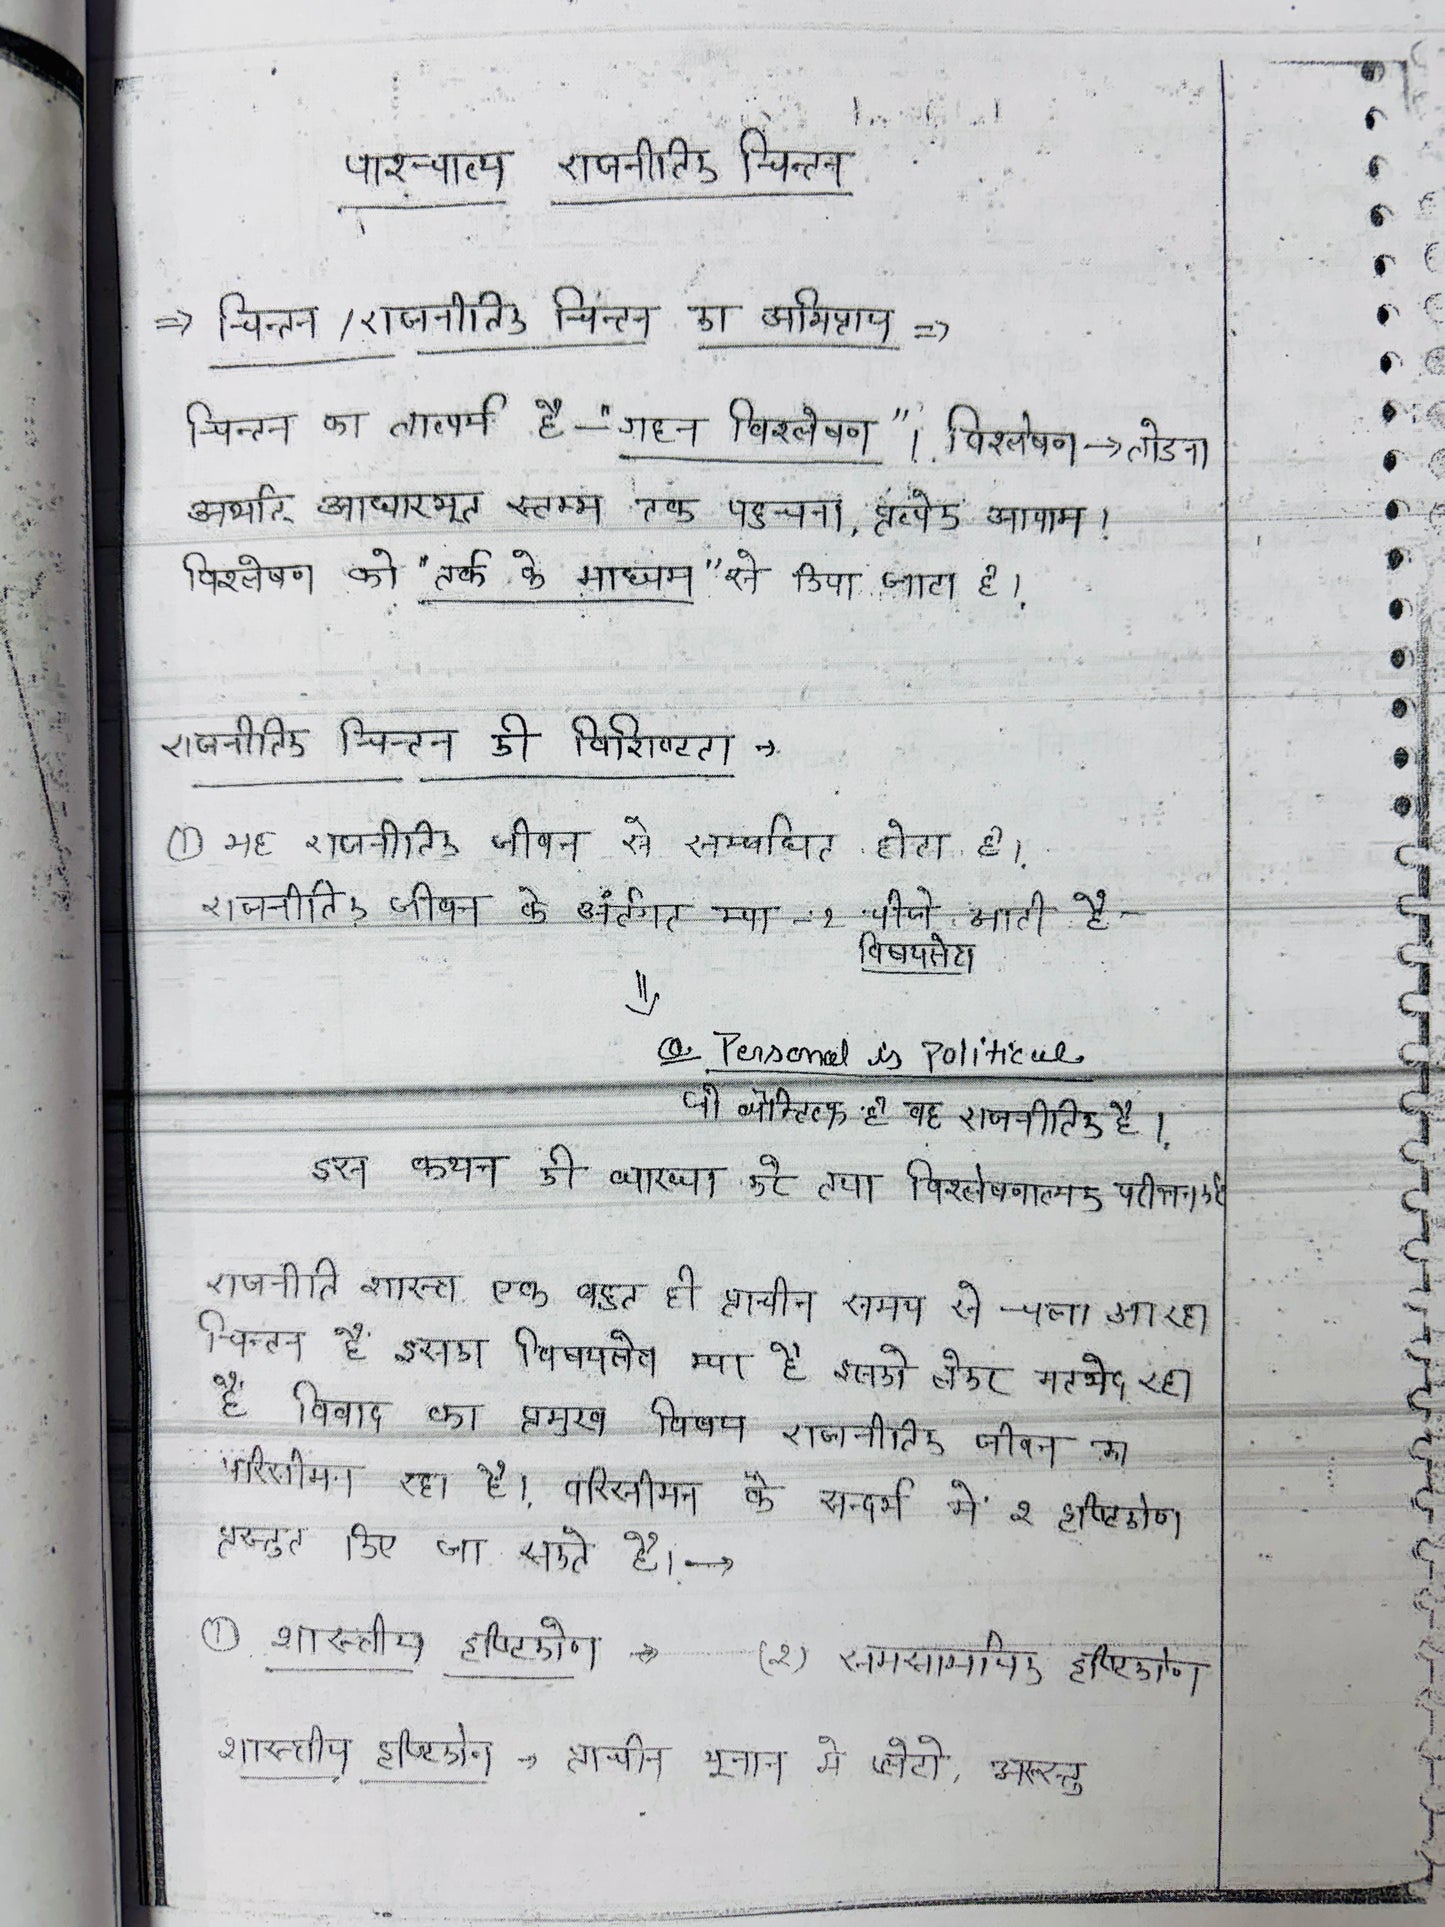 पाश्चात्य राजनीतिक चिन्तन
⇒ चिन्तन / राजनीतिक चिन्तन का अभिप्राय ⇒
चिन्तन का तात्पर्य है – "गहन विश्लेषण"। विश्लेषण → तोडना
अर्थात् आधारभूत स्तम्भ तक पहुचना, प्रत्येक आयाम।
विश्लेषण को "तर्क के माध्यम" से किया जाता है।
राजनीतिक चिन्तन की विशिष्टता →
① यह राजनीतिक जीवन से सम्बधित होता है।
राजनीतिक जीवन के अंर्तगत क्या -२ चीजे आती है –
विषयक्षेत्र
⇓
Q. Personal is Political
जो व्यक्तिक है वह राजनीतिक है।
इस कथन की व्याख्या करे तथा विश्लेषणात्मक परीक्षण करे
राजनीति शास्त्र एक बहुत ही प्राचीन समय से चला आ रहा
चिन्तन है इसका विषयक्षेत्र क्या है इसको लेकर मतभेद रहा
है विवाद का प्रमुख विषय राजनीतिक जीवन का
परिसीमन रहा है। परिसीमन के सन्दर्भ में २ दृष्टिकोण
प्रस्तुत किए जा सकते है। →
① शास्त्रीय दृष्टिकोण → (२) समसामायिक दृष्टिकोण
शास्त्रीय दृष्टिकोन → प्राचीन यूनान मे प्लेटो, अरस्तु